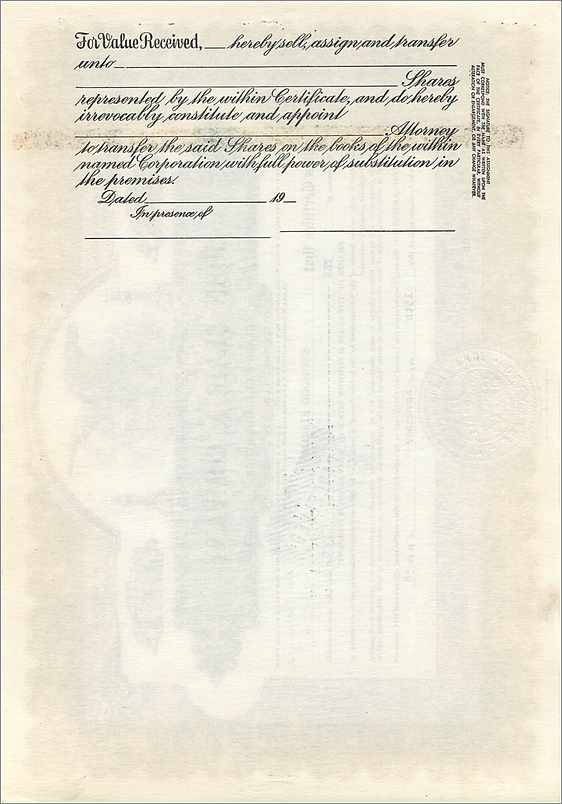 For Value Received, ___ hereby sell, assign and transfer
unto
Shares
represented by the within Certificate, and do hereby
irrevocably constitute and appoint
Attorney
to transfer the said Shares on the books of the within
named Corporation, with full power of substitution in
the premises.
Dated 19
In presence of
NOTICE: THE SIGNATURE TO THIS ASSIGNMENT
MUST CORRESPOND WITH THE NAME AS WRITTEN UPON THE
FACE OF THE CERTIFICATE, IN EVERY PARTICULAR, WITHOUT
ALTERATION OR ENLARGEMENT, OR ANY CHANGE WHATEVER.